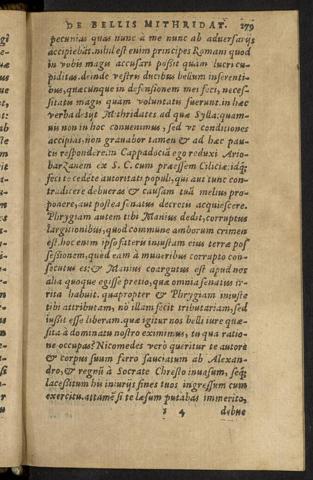 DE BELLIS MITHRIDAT. 179
pecunias quas nunc à me nunc ab aduersarijs
accipiebãt. nihil est enim principes Romani quod
in vobis magis accusari possit quàm lucri cu-
piditas. deinde vestris ducibus bellum inferenti-
bus, quæcunque in defensionem mei feci, neces-
sitatis magis quàm voluntatis fuerunt. in hæc
verba desijt Mithridates ad quæ Sylla: quam-
uis non in hoc conuenimus, sed vt conditiones
accipias, non grauabor tamen & ad hæc pau-
tis respondere. in Cappadociã ego reduxi Ario-
barzanem ex S. C. cum præessem Ciliciæ. idq;
feci te cedẽte autoritati populi, qui aut tunc con-
tradicere debueras & causam tuã melius pro-
ponere, aut postea senatus decretis acquiescere.
Phrygiam autem tibi Manius dedit, corruptus
largitionibus, quod commune amborum crimen
est. hoc enim ipso fateris iniustam eius terræ pos
sessionem, quòd eam à muneribus corrupto con-
secutus es: & Manius coargutus est apud nos
alia quoque egisse pretio, quæ omnia senatus ir-
rita habuit. quapropter & Phrygiam iniuste
tibi attributam, nõ illam fecit tributariam, sed
iussit esse liberam. quæ igitur nos belli iure quæ-
sita à dominatu nostro eximimus, tu qua ratio-
ne occupas? Nicomedes verò queritur te autore
& corpus suum ferro sauciatum ab Alexan-
dro, & regnũ à Socrate Chresto inuasum, seq;
lacessitum his iniurijs fines tuos ingressum cum
exercitu. attamẽ si te læsum putabas immeritò,
4 debue